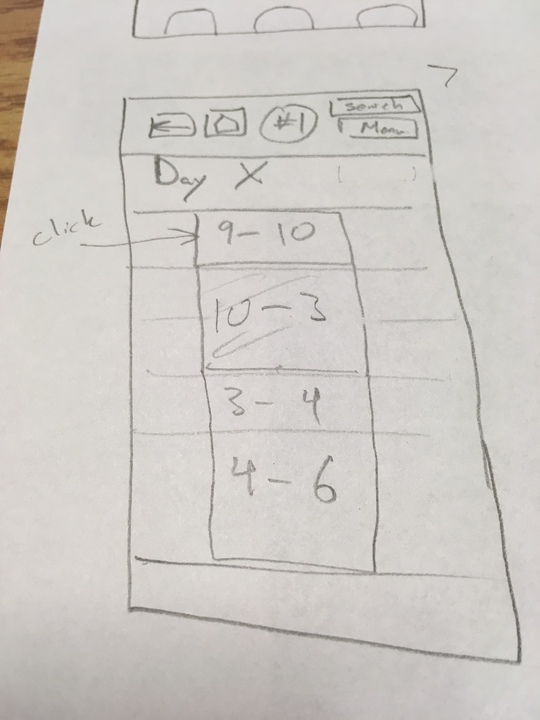 #1
search
Menu
Day X
click
9-10
10-3
3-4
4-6